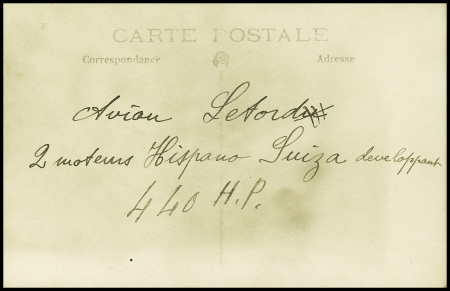 CARTE POSTALE
Correspondance Adresse
Avion Letord
2 moteurs Hispano Suiza developpant
440 H.P.